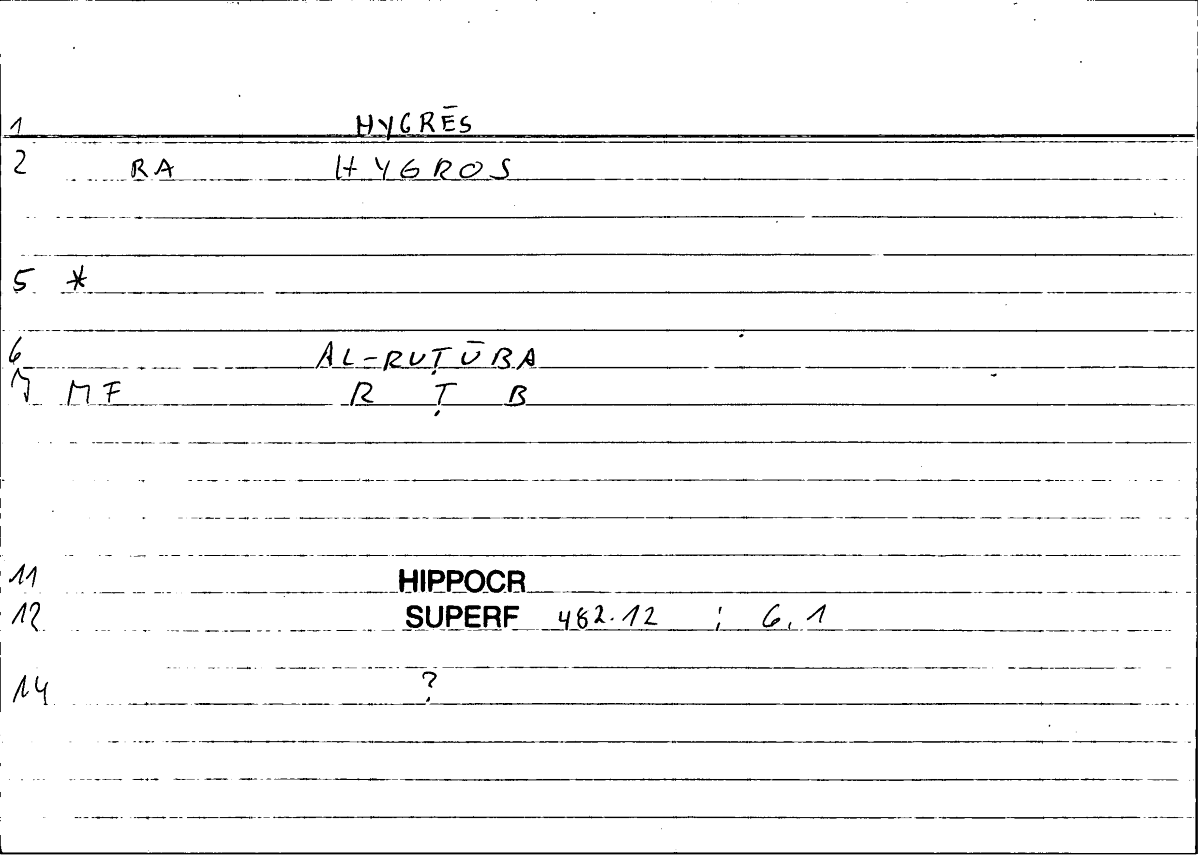 1 HYGRĒS
2 RA HYGROS
5 *
6 AL-RUṬŪBA
7 MF R Ṭ B
11 HIPPOCR
12 SUPERF 482.12 ; 6,1
14 ?